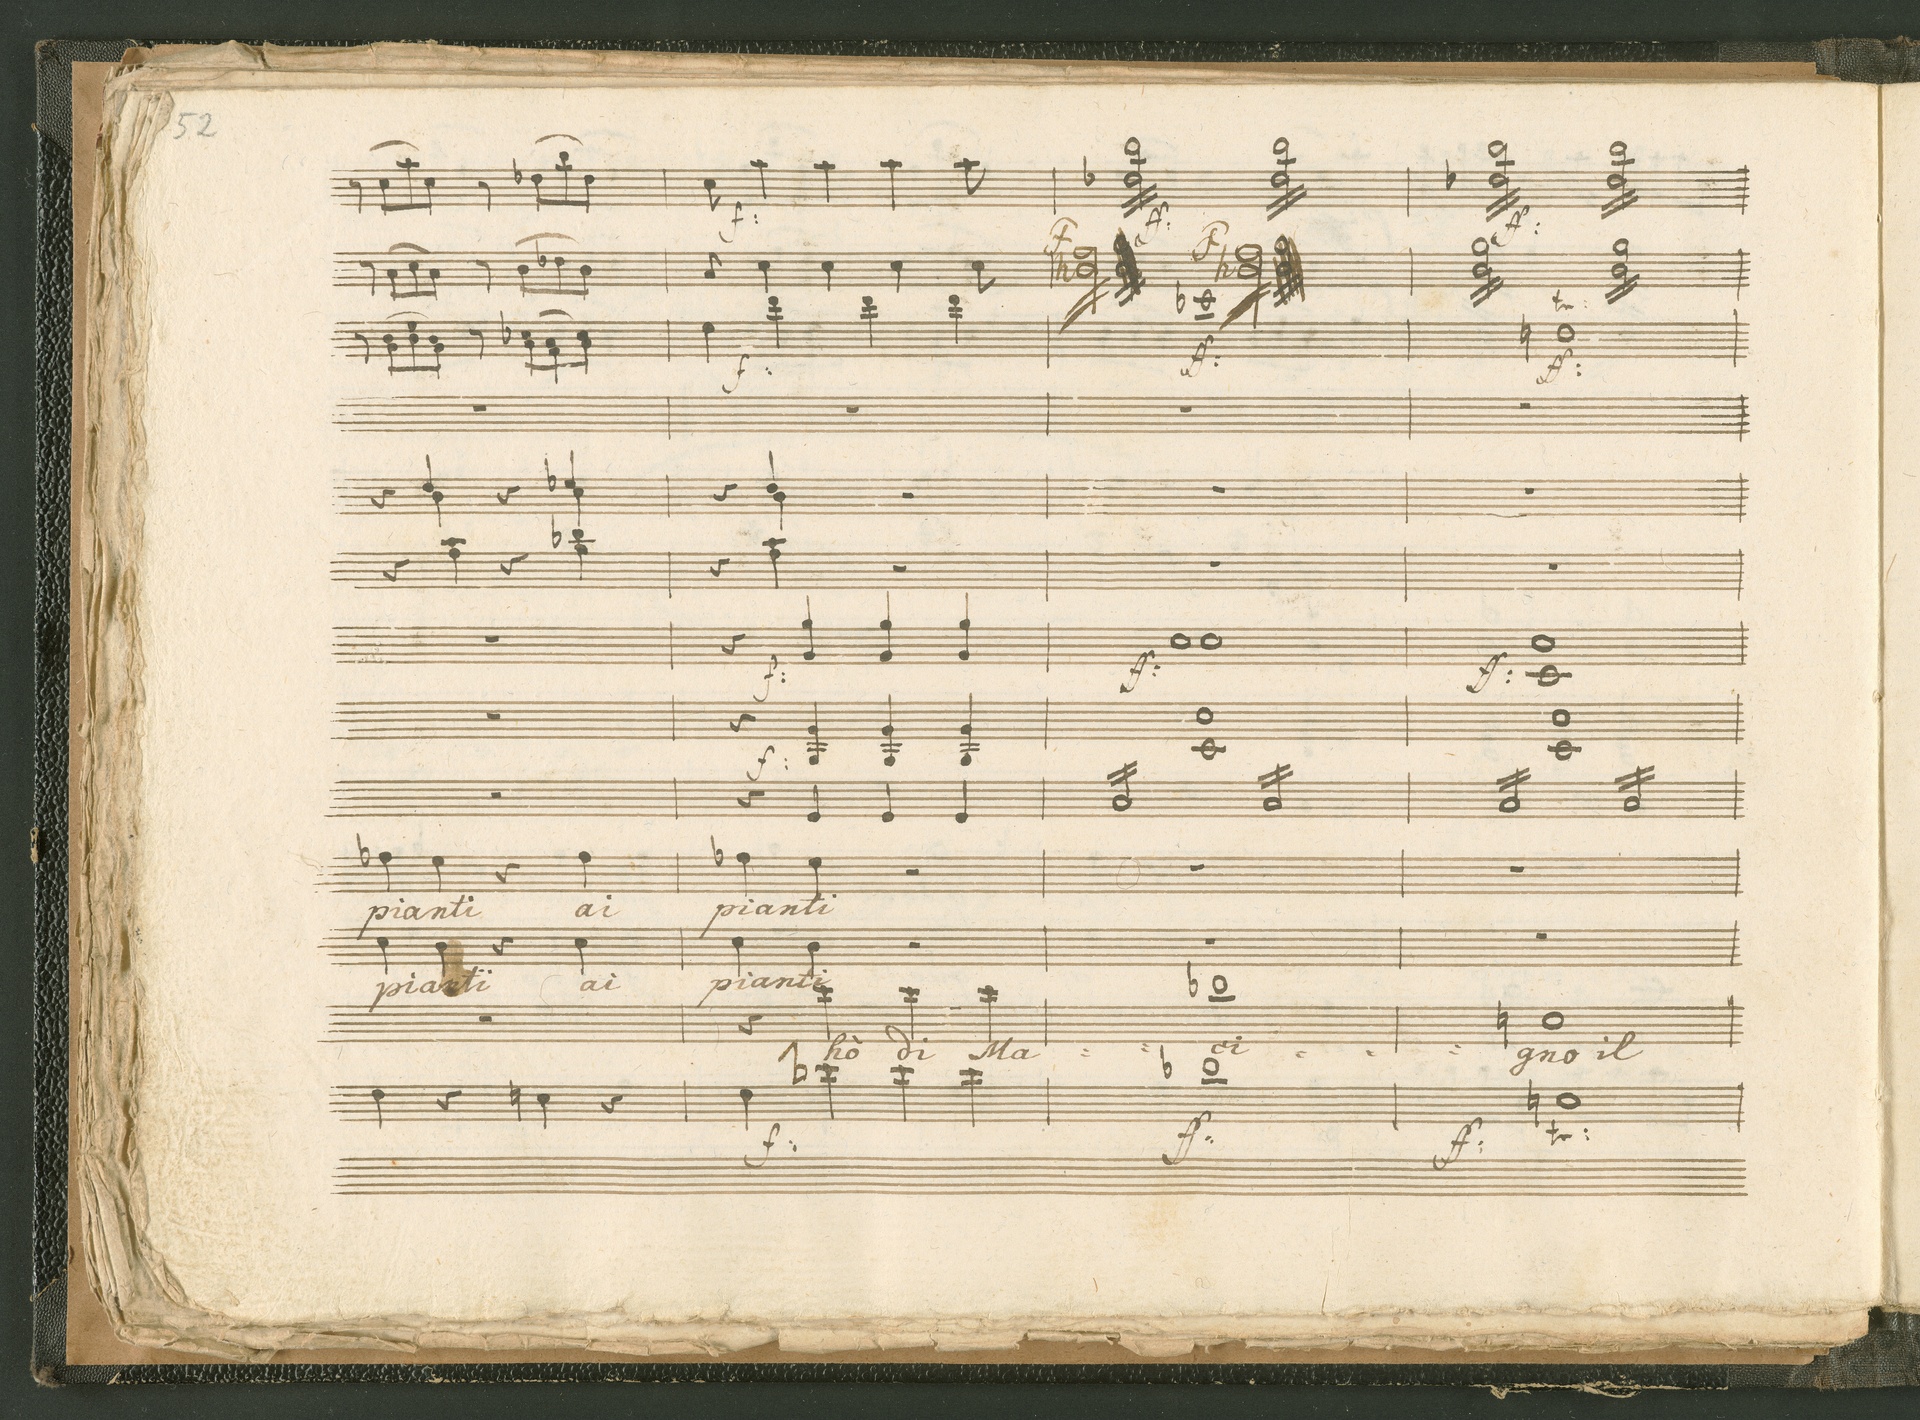 52
f:
ff:
ff:
F
h
F
h
tr:
f:
ff:
ff:
f:
ff:
ff:
f:
pianti ai pianti
pianti ai pianti
hò di Ma - - ci - - - gno il
f:
ff:
ff:
tr: